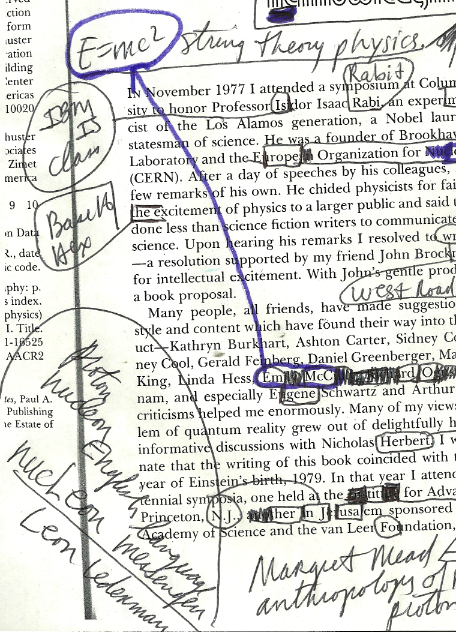 E=mc² string theory physics,
form
uster
ration
ilding
Center
ericas
10020
huster
ociates
Zimet
merica
9 10
on Data
R., date
ic code.
phy: p.
s index.
physics)
I. Title.
1-16525
AACR2
Paul A.
Publishing
he Estate of
IBM
Is
Class
Base 16
Hex
Rabit
IN November 1977 I attended a symposium at Colum
sity to honor Professor Isidor Isaac Rabi, an experim
cist of the Los Alamos generation, a Nobel laur
statesman of science. He was a founder of Brookhav
Laboratory and the Europe Organization for
(CERN). After a day of speeches by his colleagues,
few remarks of his own. He chided physicists for fai
the excitement of physics to a larger public and said t
done less than science fiction writers to communicate
science. Upon hearing his remarks I resolved to wr
—a resolution supported by my friend John Brock
for intellectual excitement. With John's gentle prod
a book proposal.
West Road
Many people, all friends, have made suggestio
style and content which have found their way into th
uct—Kathryn Burkhart, Ashton Carter, Sidney Co
ney Cool, Gerald Feinberg, Daniel Greenberger, Ma
King, Linda Hess, Em McC
nam, and especially Eugene Schwartz and Arthur
criticisms helped me enormously. Many of my views
lem of quantum reality grew out of delightfully h
informative discussions with Nicholas Herbert. I w
nate that the writing of this book coincided with t
year of Einstein's birth, 1979. In that year I attend
tennial symposia, one held at the for Adva
Princeton, N.J., another in Jerusalem sponsored
Academy of Science and the van Leer Foundation,
proton
nucleon
English language
nucleon messenger
Leon Lederman
Margret Mead
anthropology of
proton